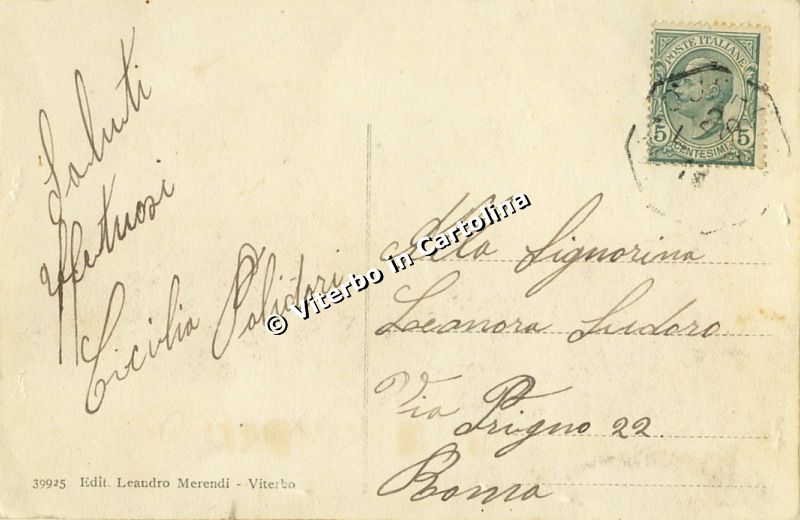 Saluti
affettuosi
Cicilia Polidori
POSTE ITALIANE
5 5
CENTESIMI
Alla Signorina
Leonora
Via Prigno 22
Roma
39925 Edit. Leandro Merendi - Viterbo
© Viterbo in Cartolina